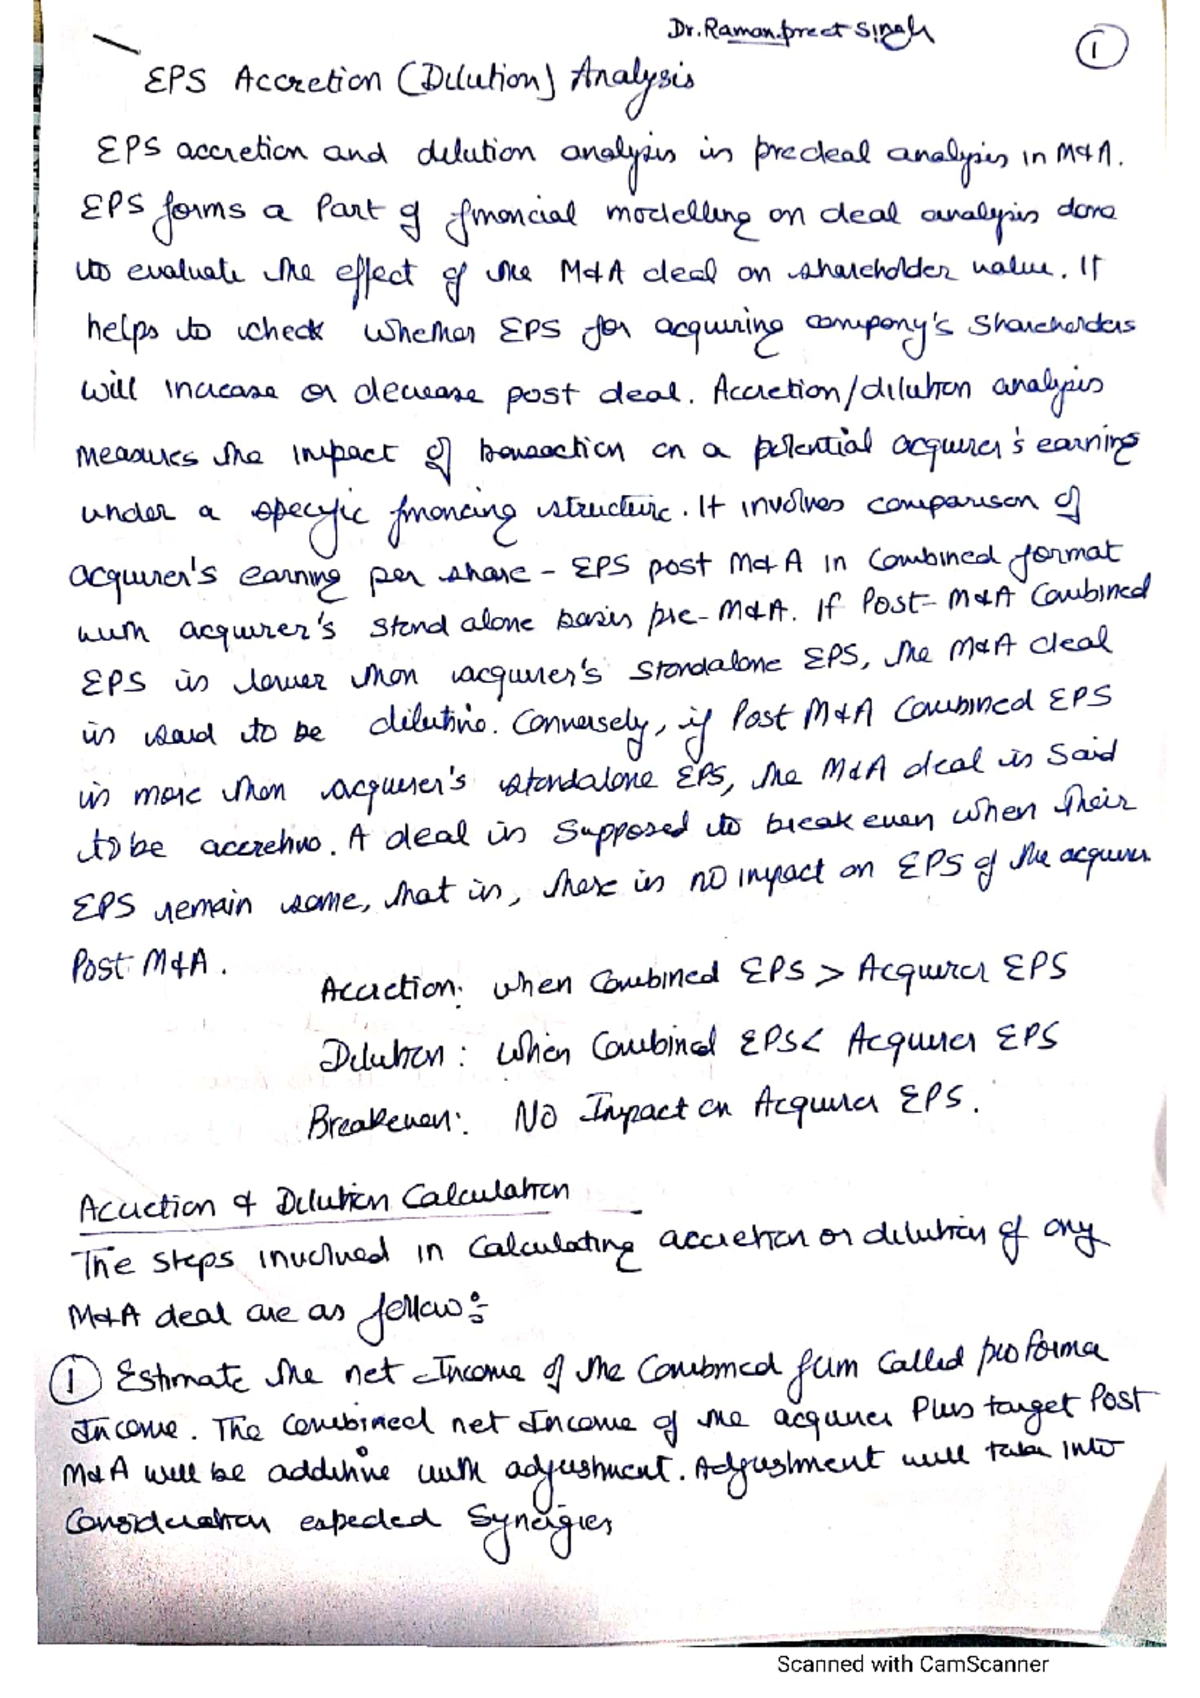 Dr. Ramanpreet Singh
1
EPS Accretion (Dilution) Analysis
EPS accretion and dilution analysis is predeal analysis in M&A.
EPS forms a Part of financial modelling on deal analysis done
to evaluate the effect of the M&A deal on shareholder value. It
helps to check whether EPS for acquiring company's Shareholders
will increase or decrease post deal. Accretion/dilution analysis
measures the impact of transaction on a potential acquirer's earning
under a specific financing structure. It involves comparison of
acquirer's earning per share - EPS post M&A in Combined format
with acquirer's stand alone basis pre-M&A. If Post-M&A Combined
EPS is lower than acquirer's standalone EPS, the M&A deal
is said to be dilutive. Conversely, if Post M&A Combined EPS
is more than acquirer's standalone EPS, the M&A deal is said
to be accretive. A deal is Supposed to breakeven when their
EPS remain same, that is, there is no impact on EPS of the acquirer
Post M&A.
Accretion: when Combined EPS > Acquirer EPS
Dilution: When Combined EPS < Acquirer EPS
Breakeven: NO Impact on Acquirer EPS.
Accretion & Dilution Calculation
The steps involved in Calculating accretion or dilution of any
M&A deal are as follow:-
1 Estimate the net Income of the Combined firm Called pro forma
Income. The combined net Income of the acquirer Plus target Post
M&A will be additive with adjustment. Adjustment will take into
Consideration expected Synergies
Scanned with CamScanner